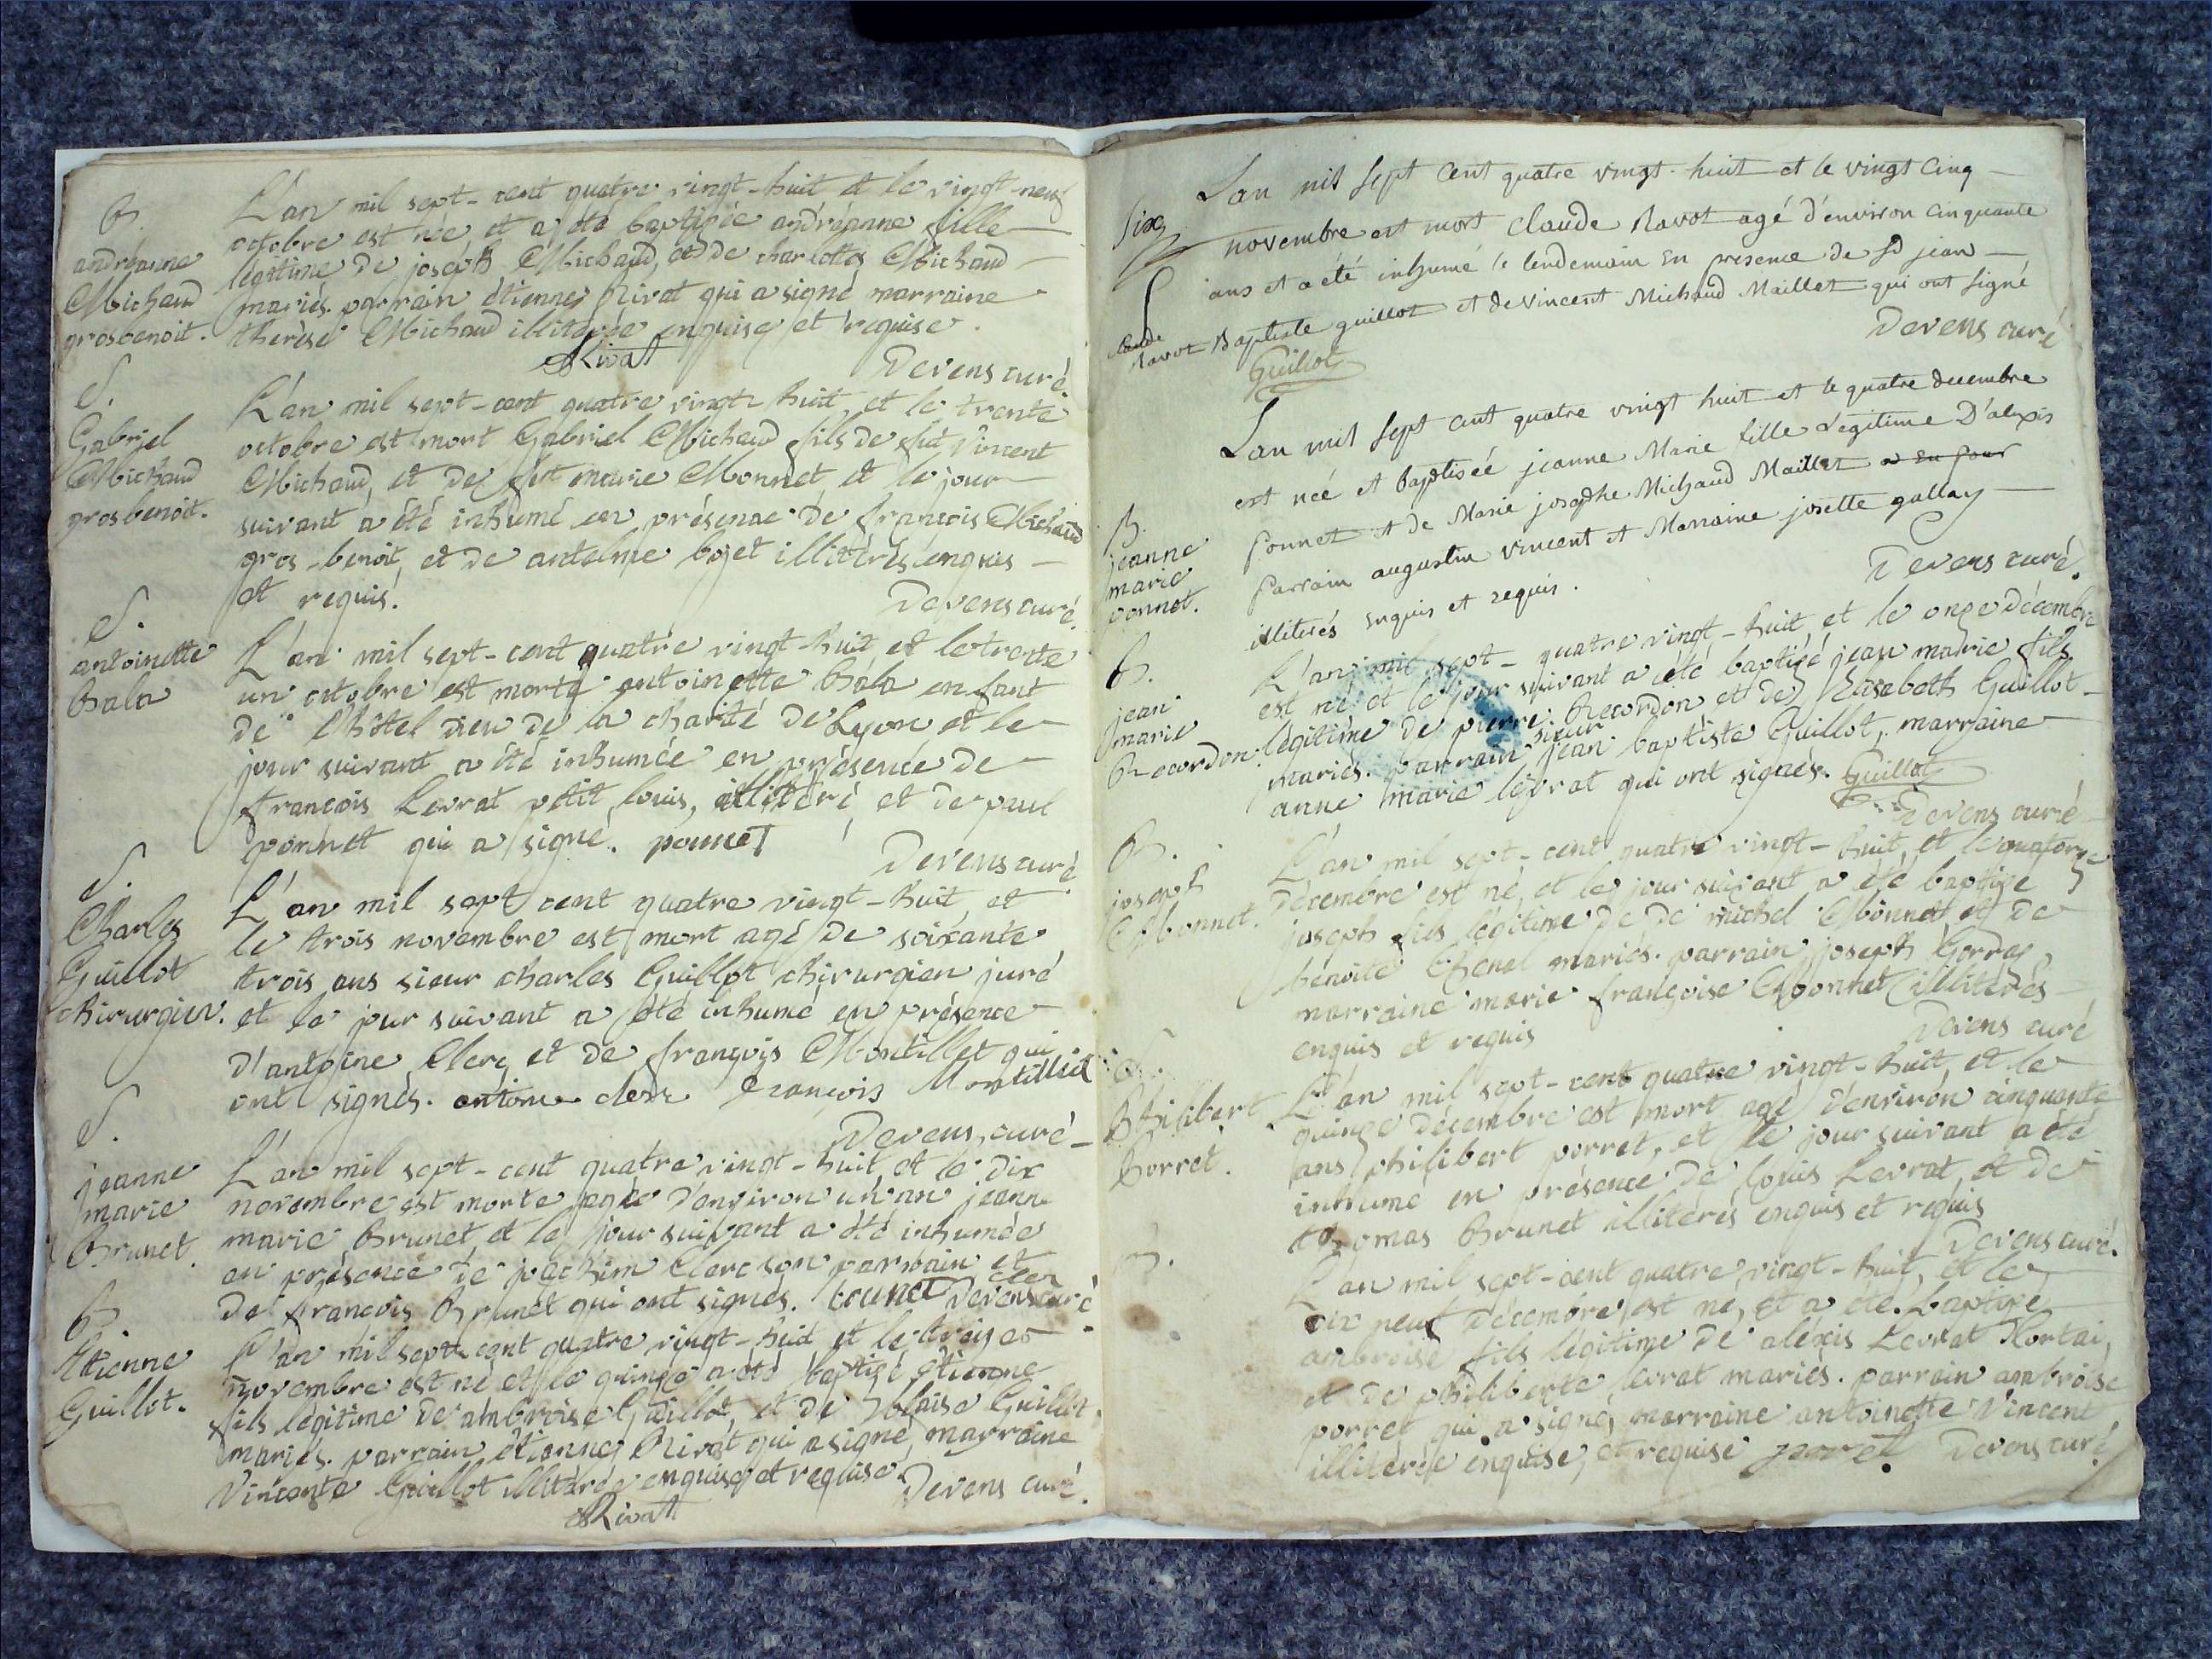 B.
andréanne
Michaud
grosbenoit.
L'an mil sept-cent quatre vingt-huit et le vingt-neuf
octobre est née et a été baptisée andréanne fille
légitime de joseph Michaud, et de charlotte Michaud
mariés. parrain étienne Rivat qui a signé marraine
therèse Michaud illitérée enquise et requise.
Rivat
Devens curé
S.
Gabriel
Michaud
gros benoit.
L'an mil sept-cent quatre vingt-huit, et le trente
octobre est mort Gabriel Michaud fils de fut Vincent
Michaud, et de fut marie Monnet et le jour
suivant a été inhumé en présence de françois Michaud
gros-benoit, et de antelme bojet illitérés enquis
et requis.
Devens curé
S.
antoinette
Bala
L'an mil sept-cent quatre vingt-huit et le trente
un octobre est morte antoinette Bala enfant
de l'hôtel dieu de la charité de Lyon et le
jour suivant a été inhumée en présence de
françois Levrat petit louis, illitéré, et de paul
ponnet qui a signé. ponnet
Devens curé
S.
Charles
Guillot
chirurgien.
L'an mil sept cent quatre vingt-huit, et
le trois novembre est mort agé de soixante
trois ans sieur charles Guillot chirurgien juré
et le jour suivant a été inhumé en présence
d'antoine Clerc et de françois Montillet qui
ont signés. antoine clerc françois Montillet
Devens, curé
S.
jeanne
marie
Brunet
L'an mil sept-cent quatre vingt-huit et le dix
novembre est morte agée d'environ un an jeanne
marie Brunet et le jour suivant a été inhumée
en présence de joachim Clerc son parrain et
de françois Brunet qui ont signés. brunet clerc Devens curé
B.
Etienne
Guillot.
L'an mil sept cent quatre vingt-huit et le treize
novembre est né et le quinze a été baptisé étienne
fils légitime de ambroise Guillot, et de blaise Guillot
mariés. parrain étienne Rivat qui a signé, marraine
Vincente Guillot illitérée enquise et requise.
Devens curé.
Rivat
Six
Lan mil sept cent quatre vingt-huit et le vingt cinq
novembre est mort claude Ravot agé d'environ cinquante
ans et a été inhumé le lendemain en presence de sr jean
Baptiste guillot et de vincent Michaud Maillet qui ont signé
S
claude
Ravot
Guillot
Devens curé
B.
jeanne
marie
ponnet.
Lan mil sept cent quatre vingt huit et le quatre decembre
est née et baptisée jeanne Marie fille Légitime D'alexis
ponnet et de Marie josephe Michaud Maillet a eu pour
parrain augustin vincent et Marraine josette gallay
illiterés enquis et requis.
Devens curé.
B.
jean
marie
Recordon.
L'an mil sept-quatre vingt-huit et le onze décembre
est né et le jour suivant a été baptisé jean marie fils
légitime de pierre Recordon et de Elisabeth Guillot
mariés. parrain sieur jean baptiste Guillot, marraine
anne marie levrat qui ont signés. Guillot
Devens curé
B.
joseph
Monnet.
L'an mil sept-cent quatre vingt-huit, et le quatorze
décembre est né, et le jour suivant a été baptisé
joseph fils légitime de de michel Monnet, et de
benoite Chenel mariés. parrain joseph Gorraz,
marraine marie françoise Monnet illitérés
enquis et requis
Devens curé
S.
Philibert
Porret.
L'an mil sept-cent quatre vingt-huit, et le
quinze décembre est mort agé d'environ cinquante
ans philibert porret, et le jour suivant a été
inhumé en présence de louis Levrat, et de
thomas Brunet illitérés enquis et requis
Devens curé.
B.
L'an mil sept-cent quatre vingt-huit, et le
dix neuf décembre est né, et a été baptisé
ambroise fils légitime de aléxis Levrat
et de philiberte levrat mariés. parrain ambroise
porret qui a signé, marraine antoinette Vincent
illitérée enquise, et requise poret Devens curé